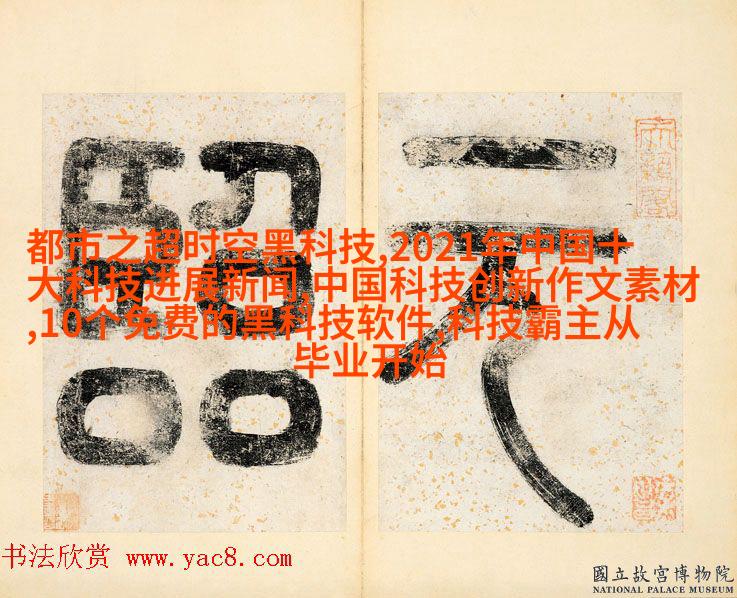 元
都市之超时空黑科技,2021年中国十
大科技进展新闻,中国科技创新作文素材
,10个免费的黑科技软件,科技霸主从
毕业开始
书法欣赏 www.yac8.com
國立故宮博物院
NATIONAL PALACE MUSEUM